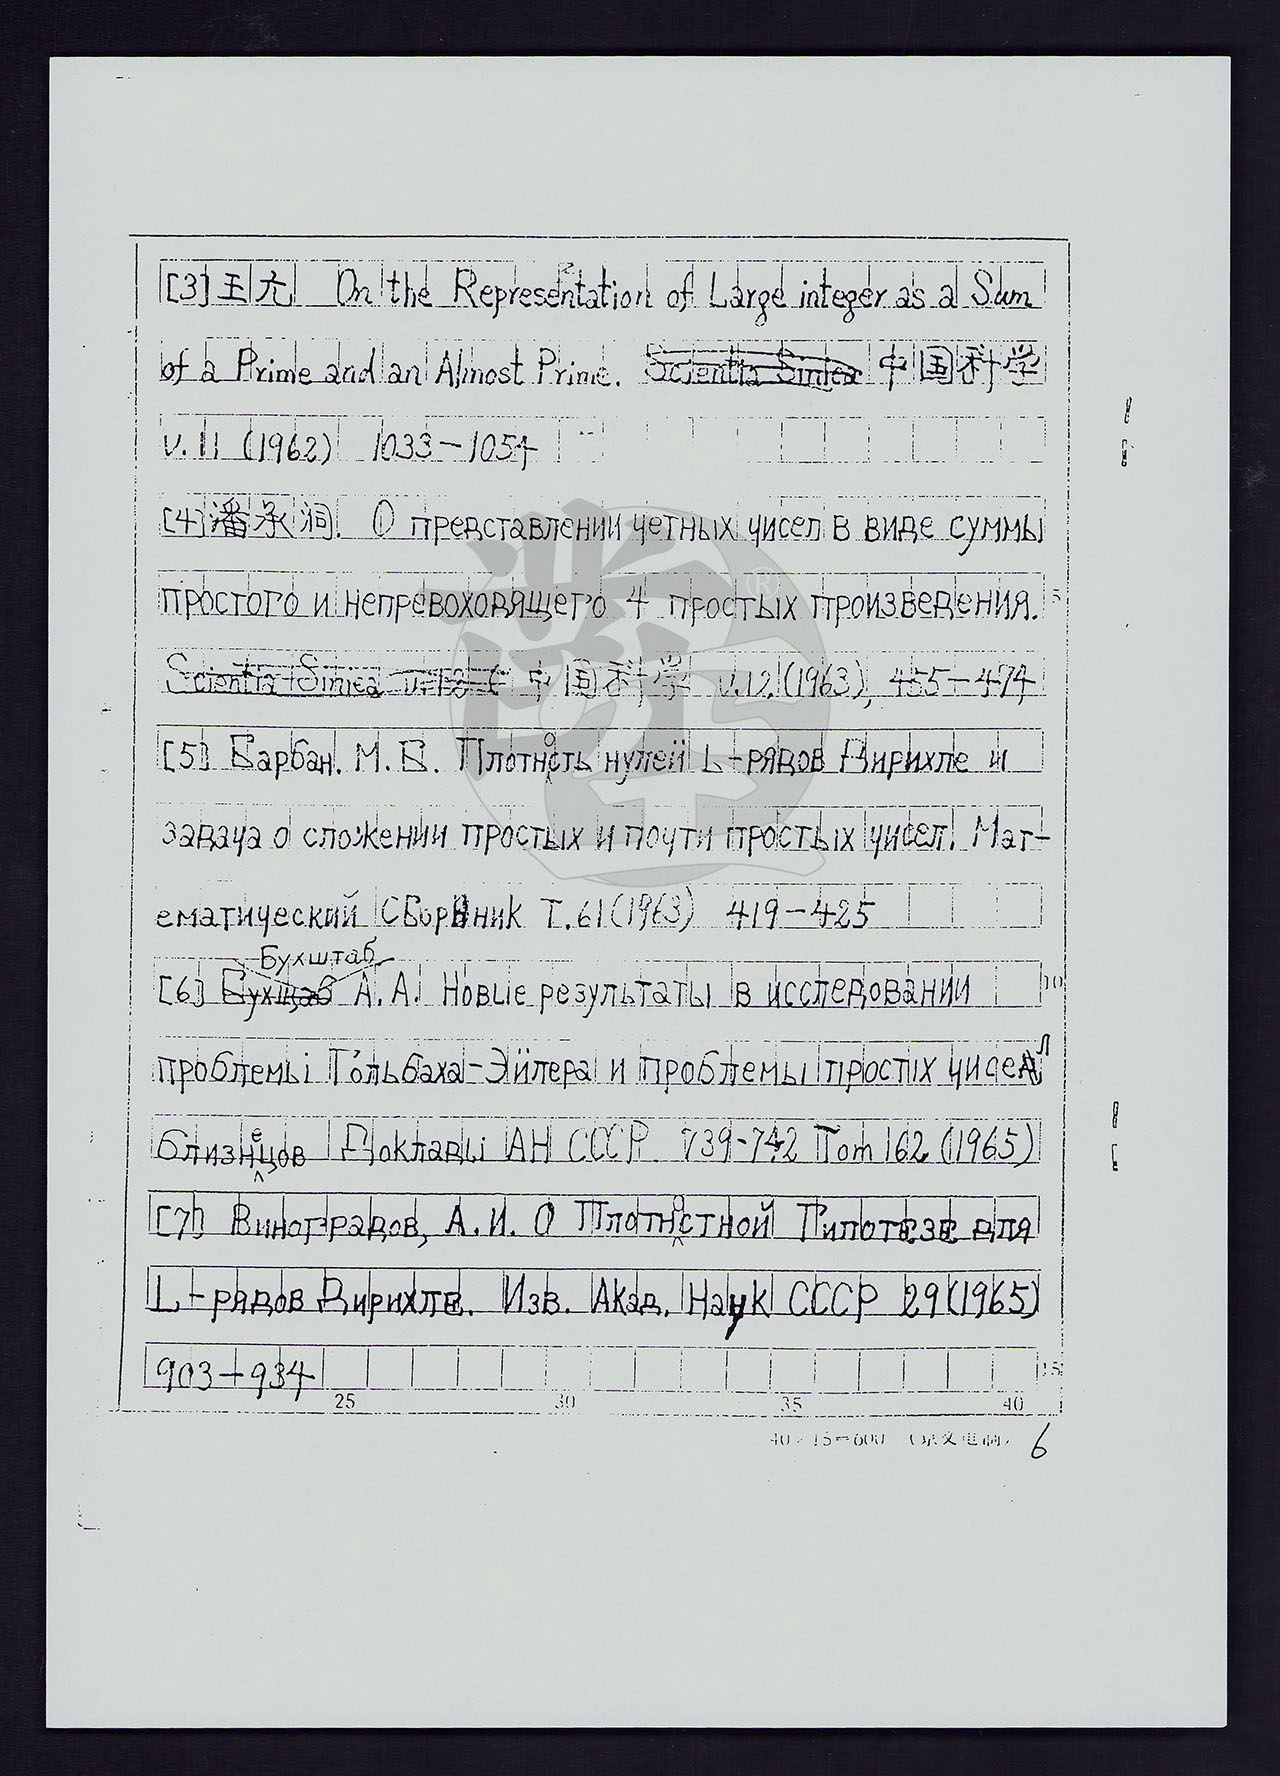 [3] 王元 On the Representation of Large integer as a Sum
of a Prime and an Almost Prime. Scientia Sinica 中国科学
V.11 (1962) 1033-1054
[4] 潘承洞. О представлении четных чисел в виде суммы
простого и непревоходящего 4 простых произведения. 5
Scientia Sinica 中国科学 V.12.(1963), 455-474
[5] Барбан. М.Б. Плотность нулей L-рядов Дирихле и
задача о сложении простых и почти простых чисел. Мат-
ематический Сборник Т.61(1963) 419-425
Бухштаб
[6] А.А. Новые результаты в исследовании 10
проблемы Гольбаха-Эйлера и проблемы простых чисел
близнецов Доклады АН СССР 739-742 Том 162 (1965)
[7] Виноградов, А.И. О Плотностной Гипотезе для
L-рядов Дирихле. Изв. Акад. Наук СССР 29(1965)
903-934 15
25 30 35 40
6